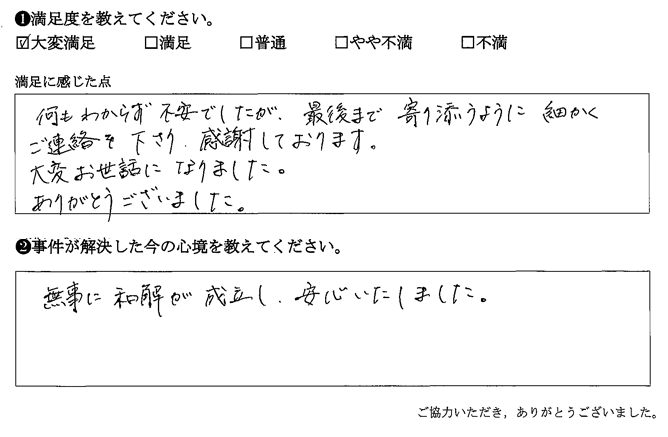 ❶満足度を教えてください。
☑大変満足 □満足 □普通 □やや不満 □不満
満足に感じた点
何もわからず不安でしたが、最後まで寄り添うように細かく
ご連絡を下さり、感謝しております。
大変お世話になりました。
ありがとうございました。
❷事件が解決した今の心境を教えてください。
無事に和解が成立し、安心いたしました。
ご協力いただき，ありがとうございました。